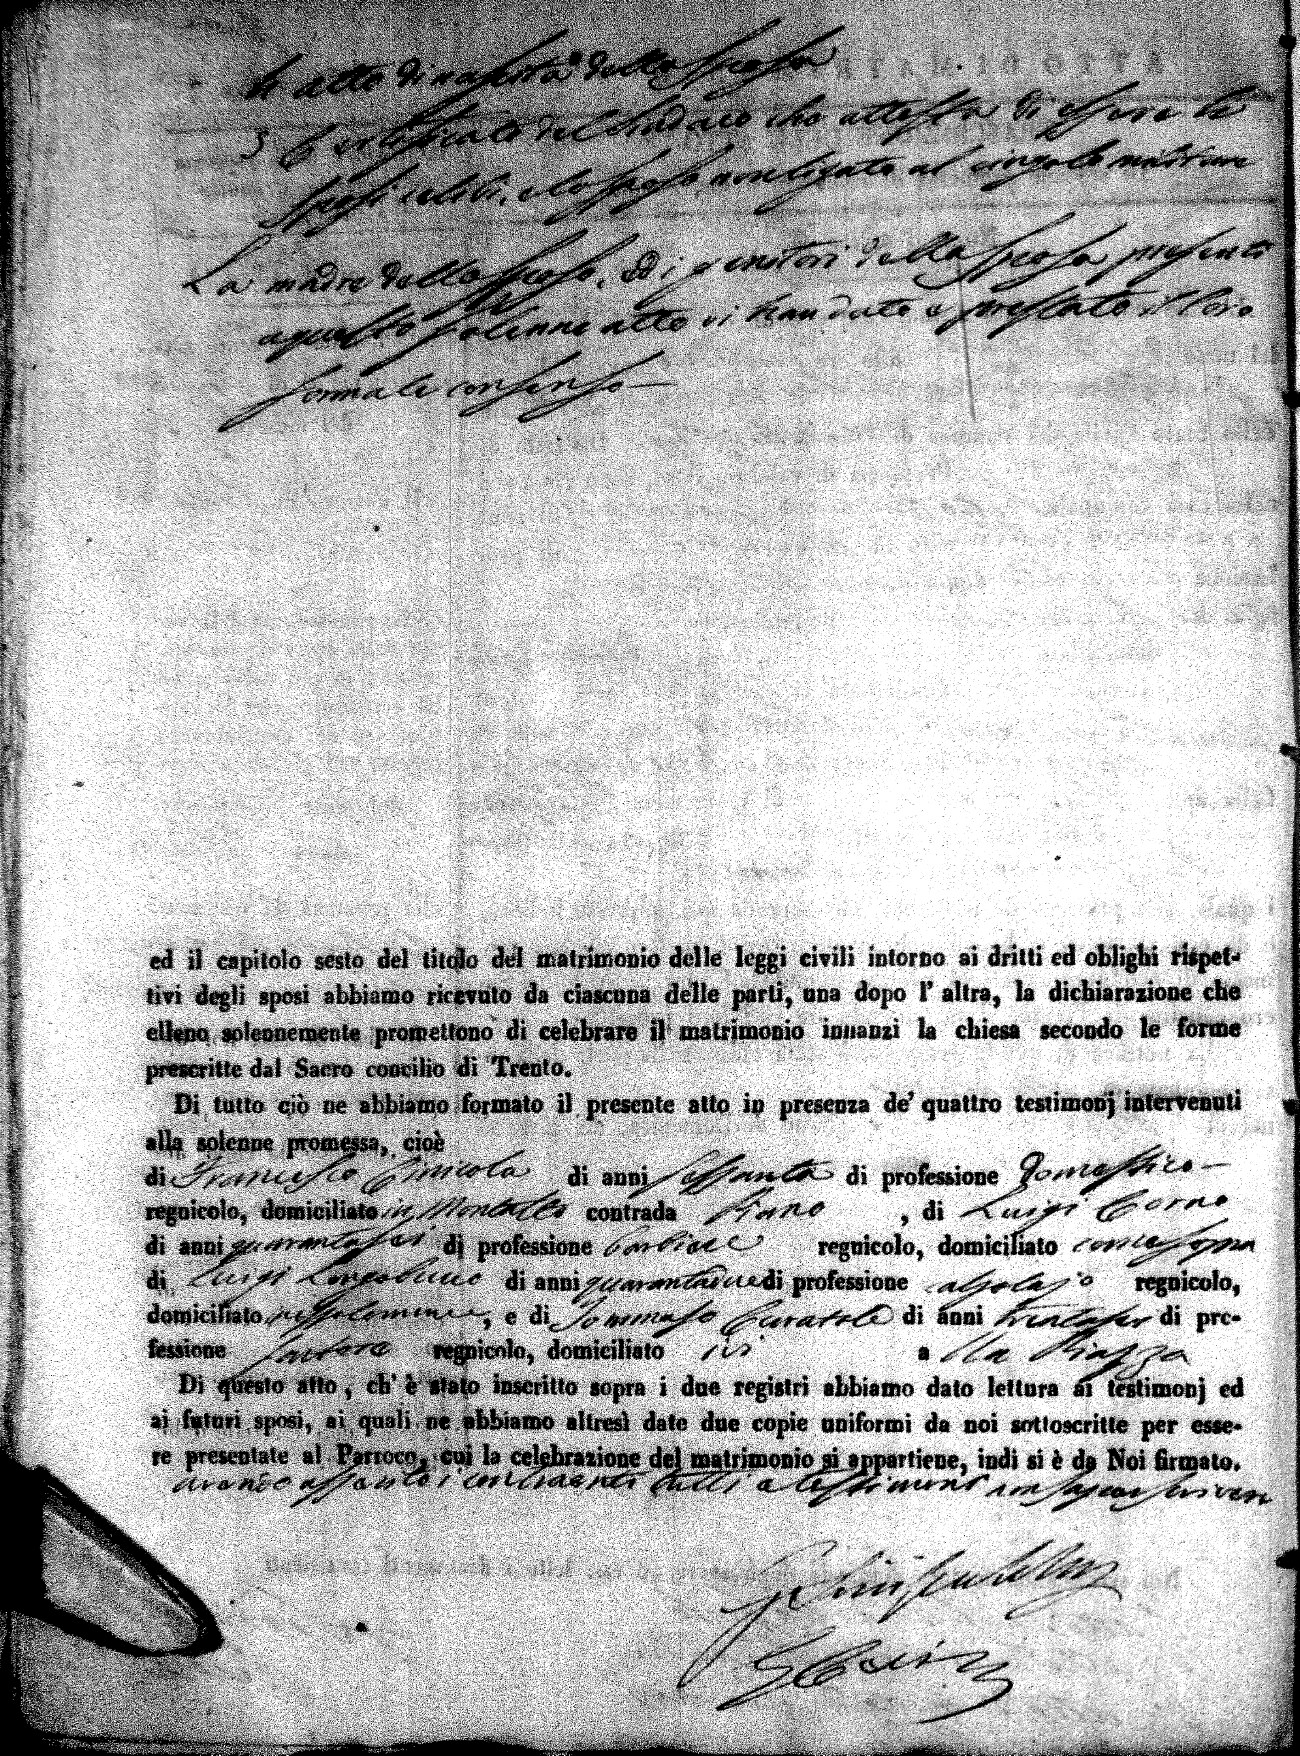 L' atto di nascita della sposa
3 Certificato del Sindaco che attesta di essere li
sposi celibi, e lo sposo non ligato al cingolo militare
La madre dello sposo, ed i genitori della sposa presenti
a questo solenne atto vi han dato e prestato il loro
formale consenso —
ed il capitolo sesto del titolo del matrimonio delle leggi civili intorno ai dritti ed oblighi rispet-
tivi degli sposi abbiamo ricevuto da ciascuna delle parti, una dopo l' altra, la dichiarazione che
elleno solennemente promettono di celebrare il matrimonio innanzi la chiesa secondo le forme
prescritte dal Sacro concilio di Trento.
Di tutto ciò ne abbiamo formato il presente atto in presenza de' quattro testimonj intervenuti
alla solenne promessa, cioè
di Francesco di anni sessanta di professione Domestico —
regnicolo, domiciliato in contrada Piano , di Luigi Corno
di anni quarantasei di professione barbiere regnicolo, domiciliato come sopra
di Luigi Longobucco di anni quarantadue di professione regnicolo,
domiciliato , e di Tommaso Curatolo di anni trentasei di pro-
fessione sartore regnicolo, domiciliato ivi a lla Piazza
Di questo atto , ch' è stato inscritto sopra i due registri abbiamo dato lettura ai testimonj ed
ai futuri sposi, ai quali ne abbiamo altresì date due copie uniformi da noi sottoscritte per esse-
re presentate al Parroco, cui la celebrazione del matrimonio si appartiene, indi si è da Noi firmato.
avendo assunto i contraenti tutti e testimoni non saper scrivere